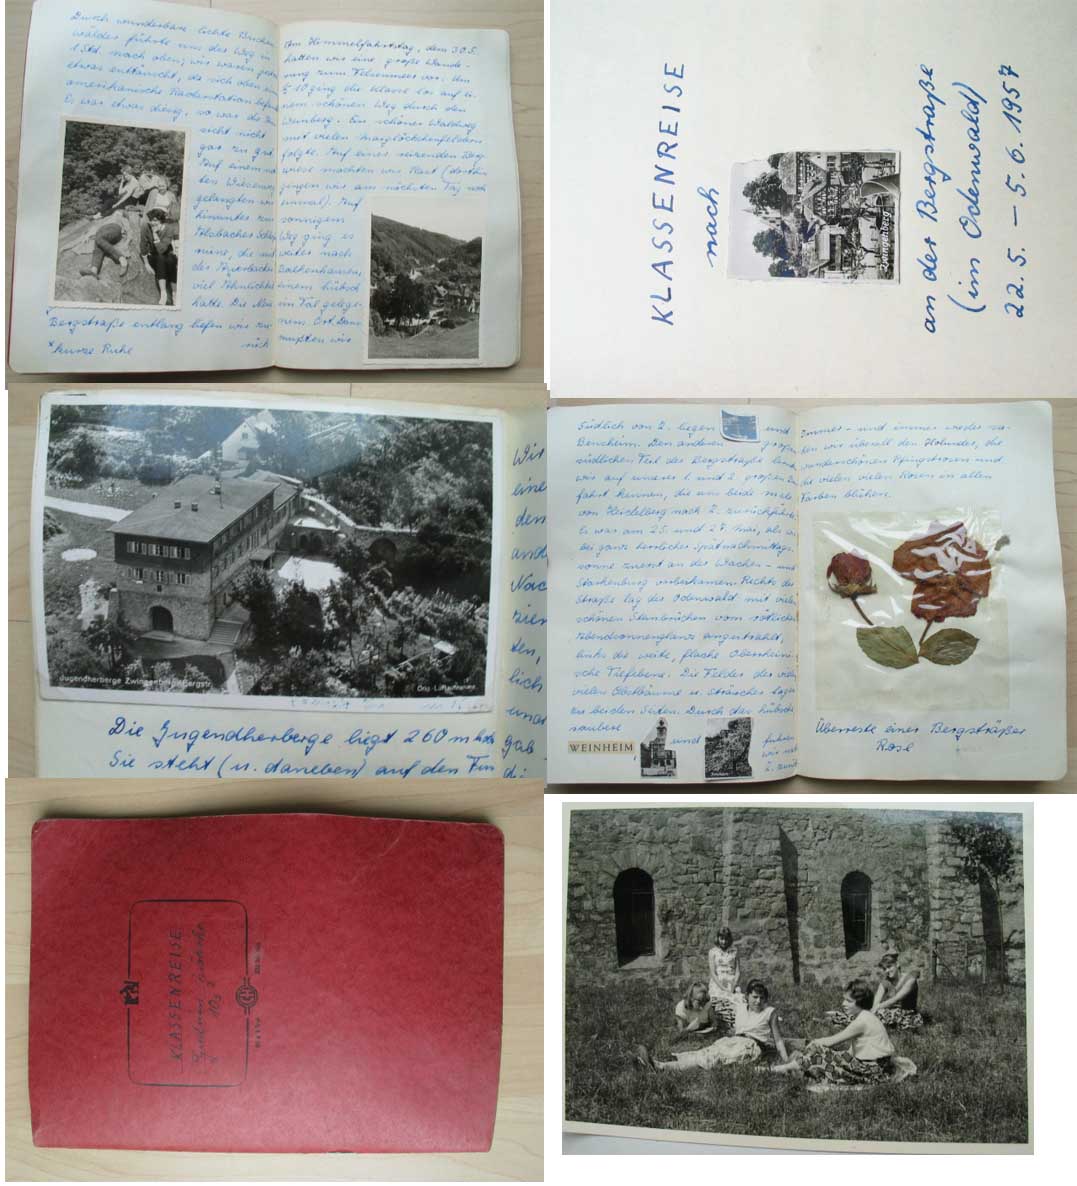 Durch wunderbare lichte Buchen
wälder führte uns der Weg in
1 Std. nach oben; wir waren
etwas enttäuscht, da sich oben eine
amerikanische Radarstation
Es war etwas diesig, so war die
sicht nicht
gar zu gut.
Auf einem
ten Wiesenweg
gelangten wir
hinunter zum
die mit
der Auerbacher
viel Ähnlichkeit
hatte. Die
Bergstraße entlang liefen wir zu-
rück
kurze Ruhe
Am Himmelfahrtstag, dem 30.5.
hatten wir eine große Wande-
rung zum Felsenmeer vor. Um
½ 10 ging die Klasse los auf ei-
nem schönen Weg durch den
Weinberg. Ein schöner Waldweg
mit vielen Maiglöckchenfeldern
folgte. Auf einer reizenden Berg-
wiese machten wir Rast (dorthin
gingen wir am nächsten Tag noch
einmal). Auf
sonnigem
Weg ging es
weiter nach
Balkenhausen,
einem hübsch
im Tal gelege-
nem Ort. Dann
mußten wir
KLASSENREISE
nach
Zwingenberg
an der Bergstraße
(im Odenwald)
22.5. – 5.6.1957
Jugendherberge Zwingenberg/Bergstr.
Die Jugendherberge liegt 260 m hoch
Sie steht (u. daneben) auf den
Wir
eine
den
und
Nac
zien
ten,
lich
unse
gab
di
Südlich von Z. liegen und
Bensheim. Den anderen
südlichen Teil der Bergstraße
wir auf unserer 1. und 2. großen
fahrt kennen, die uns beide male
von Heidelberg nach Z. zurückführte.
Es war am 25. und 27. Mai, als wir
bei ganz herrlicher Spätnachmittags-
sonne zuerst an der Wachen- und
Starkenburg vorbeikamen. Rechts der
Straße lag der Odenwald mit vielen
schönen Steinbrüchen vom rötlichen
Abendsonnenglanz angestrahlt,
links die weite, flache Oberrheini-
sche Tiefebene. Die Felder der vielen
vielen Obstbäume u. sträucher lagen
zu beiden Seiten. Durch das hübsche
saubere
WEINHEIM, und führen
wir
Z. zurück
Immer- und immer wieder sa-
hen wir überall den Holunder, die
wunderschönen Pfingstrosen und
die vielen vielen Rosen in allen
Farben blühen.
Überreste einer Bergsträßer
Rose
KLASSENREISE
10s